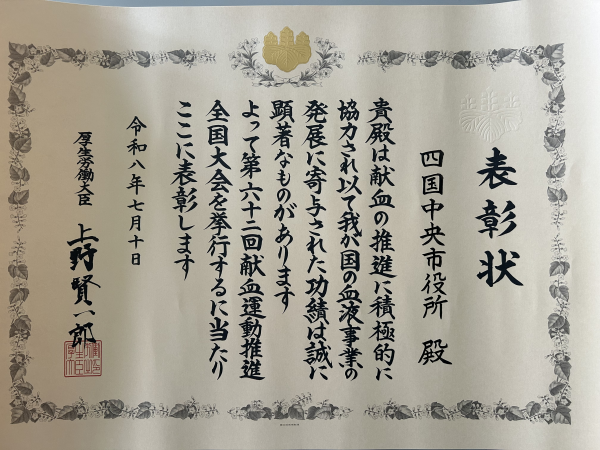 表彰状
四国中央市役所 殿
貴殿は献血の推進に積極的に
協力され以て我が国の血液事業の
発展に寄与された功績は誠に
顕著なものがあります
よって第六十二回献血運動推進
全国大会を挙行するに当たり
ここに表彰します
令和八年七月十日
厚生労働大臣
上野賢一郎